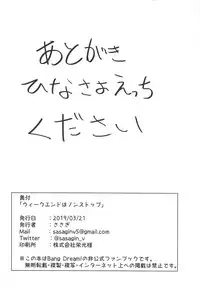 あとがき
ひなさよえっち
ください
奥付
「ウィークエンドはノンストップ」
発行日：2019/03/21
発行者：ささぎ
Mail：sasaginv5@gmail.com
Twitter：@sasagin_v
印刷所：株式会社栄光様
※この本はBang Dream!の非公式ファンブックです。
無断転載・複製・複写・インターネット上への掲載は禁止です。